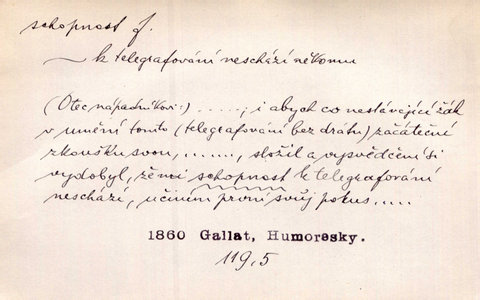 schopnost f.
— k telegrafování neschází někomu
(Otec nápadníkovi:) ......., i abych co nestávající žák
v umění tomto (telegrafování bez drátu) začáteční
zkoušku svou, ......., složil a vysvědčení si
vydobyl, že mi schopnost k telegrafování
neschází, učiním první svůj pokus .....
1860 Gallat, Humoresky.
119,5